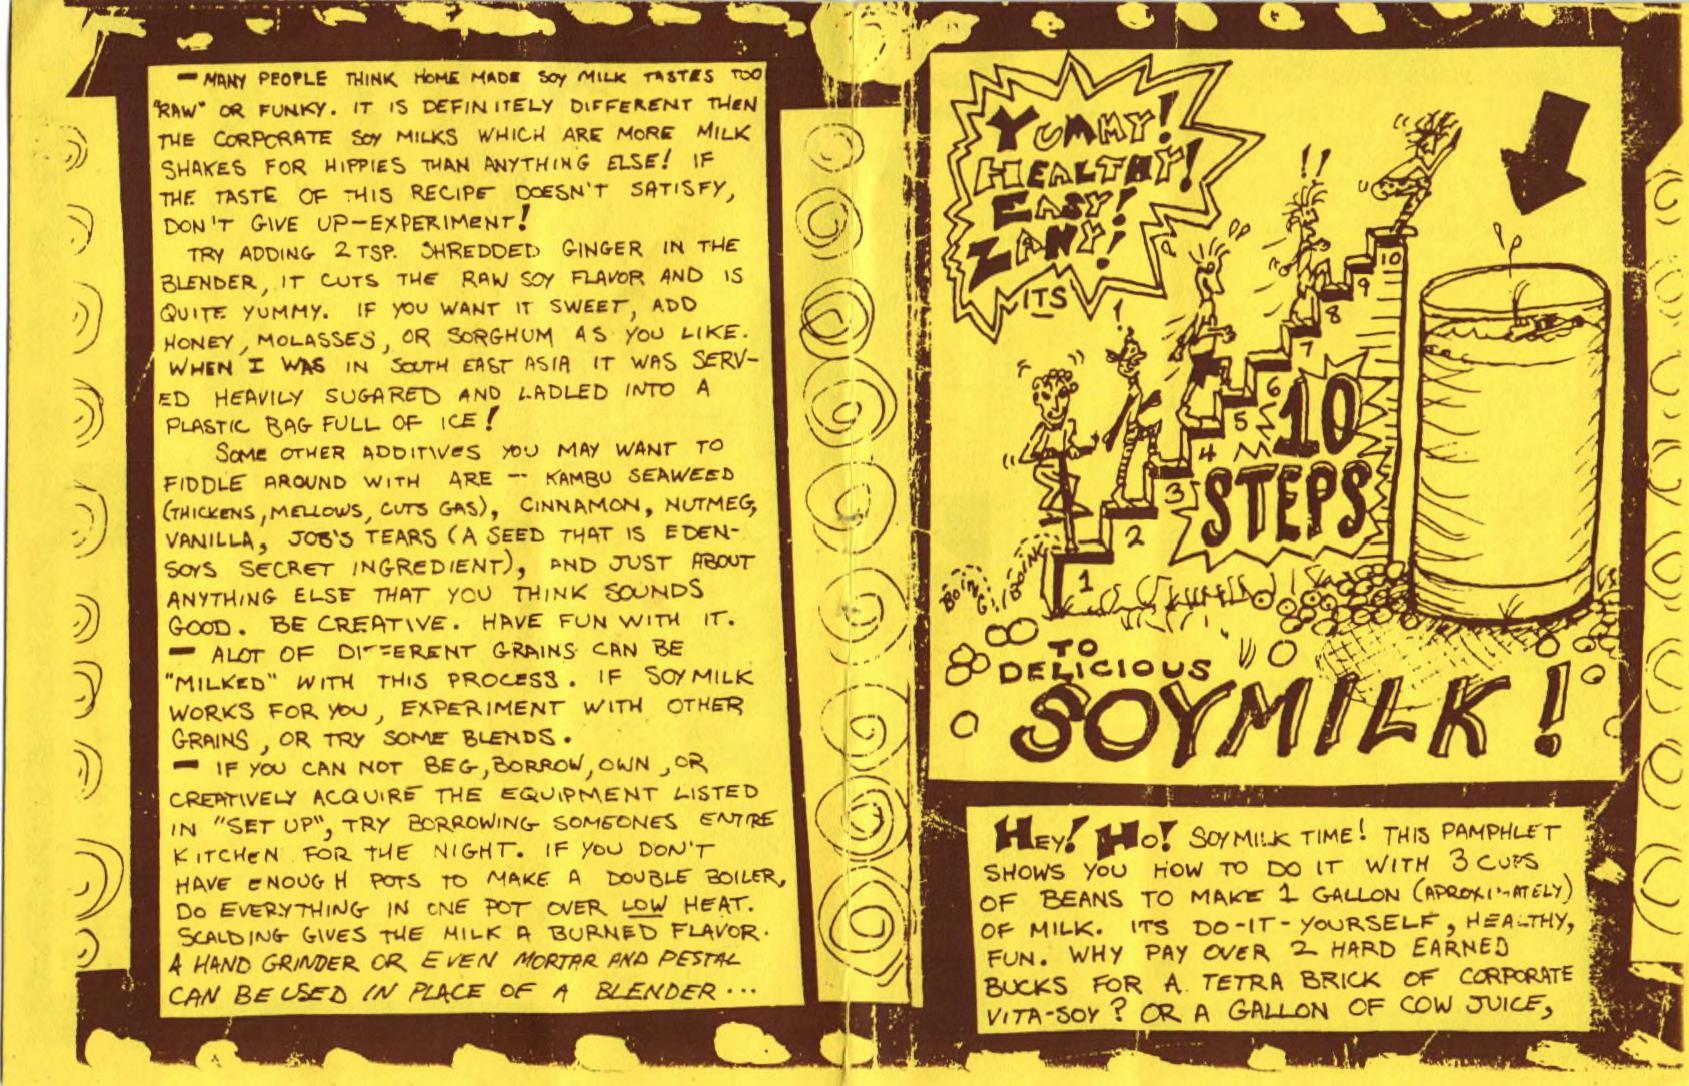 - MANY PEOPLE THINK HOME MADE SOY MILK TASTES TOO
"RAW" OR FUNKY. IT IS DEFINITELY DIFFERENT THEN
THE CORPORATE SOY MILKS WHICH ARE MORE MILK
SHAKES FOR HIPPIES THAN ANYTHING ELSE! IF
THE TASTE OF THIS RECIPE DOESN'T SATISFY,
DON'T GIVE UP-EXPERIMENT!
TRY ADDING 2 TSP. SHREDDED GINGER IN THE
BLENDER, IT CUTS THE RAW SOY FLAVOR AND IS
QUITE YUMMY. IF YOU WANT IT SWEET, ADD
HONEY, MOLASSES, OR SORGHUM AS YOU LIKE.
WHEN I WAS IN SOUTH EAST ASIA IT WAS SERV-
ED HEAVILY SUGARED AND LADLED INTO A
PLASTIC BAG FULL OF ICE!
SOME OTHER ADDITIVES YOU MAY WANT TO
FIDDLE AROUND WITH ARE -- KAMBU SEAWEED
(THICKENS, MELLOWS, CUTS GAS), CINNAMON, NUTMEG,
VANILLA, JOB'S TEARS (A SEED THAT IS EDEN-
SOYS SECRET INGREDIENT), AND JUST ABOUT
ANYTHING ELSE THAT YOU THINK SOUNDS
GOOD. BE CREATIVE. HAVE FUN WITH IT.
- ALOT OF DIFFERENT GRAINS CAN BE
"MILKED" WITH THIS PROCESS. IF SOYMILK
WORKS FOR YOU, EXPERIMENT WITH OTHER
GRAINS, OR TRY SOME BLENDS.
- IF YOU CAN NOT BEG, BORROW, OWN, OR
CREATIVELY ACQUIRE THE EQUIPMENT LISTED
IN "SET UP", TRY BORROWING SOMEONES ENTIRE
KITCHEN FOR THE NIGHT. IF YOU DON'T
HAVE ENOUGH POTS TO MAKE A DOUBLE BOILER,
DO EVERYTHING IN ONE POT OVER LOW HEAT.
SCALDING GIVES THE MILK A BURNED FLAVOR.
A HAND GRINDER OR EVEN MORTAR AND PESTAL
CAN BE USED IN PLACE OF A BLENDER...
YUMMY!
HEALTHY!
EASY!
ZANY!
ITS
10
STEPS
1
2
3
4
5
6
7
8
9
10
!
!!
BOING! BOING
TO
DELICIOUS
SOYMILK!
HEY! HO! SOYMILK TIME! THIS PAMPHLET
SHOWS YOU HOW TO DO IT WITH 3 CUPS
OF BEANS TO MAKE 1 GALLON (APROXIMATELY)
OF MILK. ITS DO-IT-YOURSELF, HEALTHY,
FUN. WHY PAY OVER 2 HARD EARNED
BUCKS FOR A TETRA BRICK OF CORPORATE
VITA-SOY? OR A GALLON OF COW JUICE,